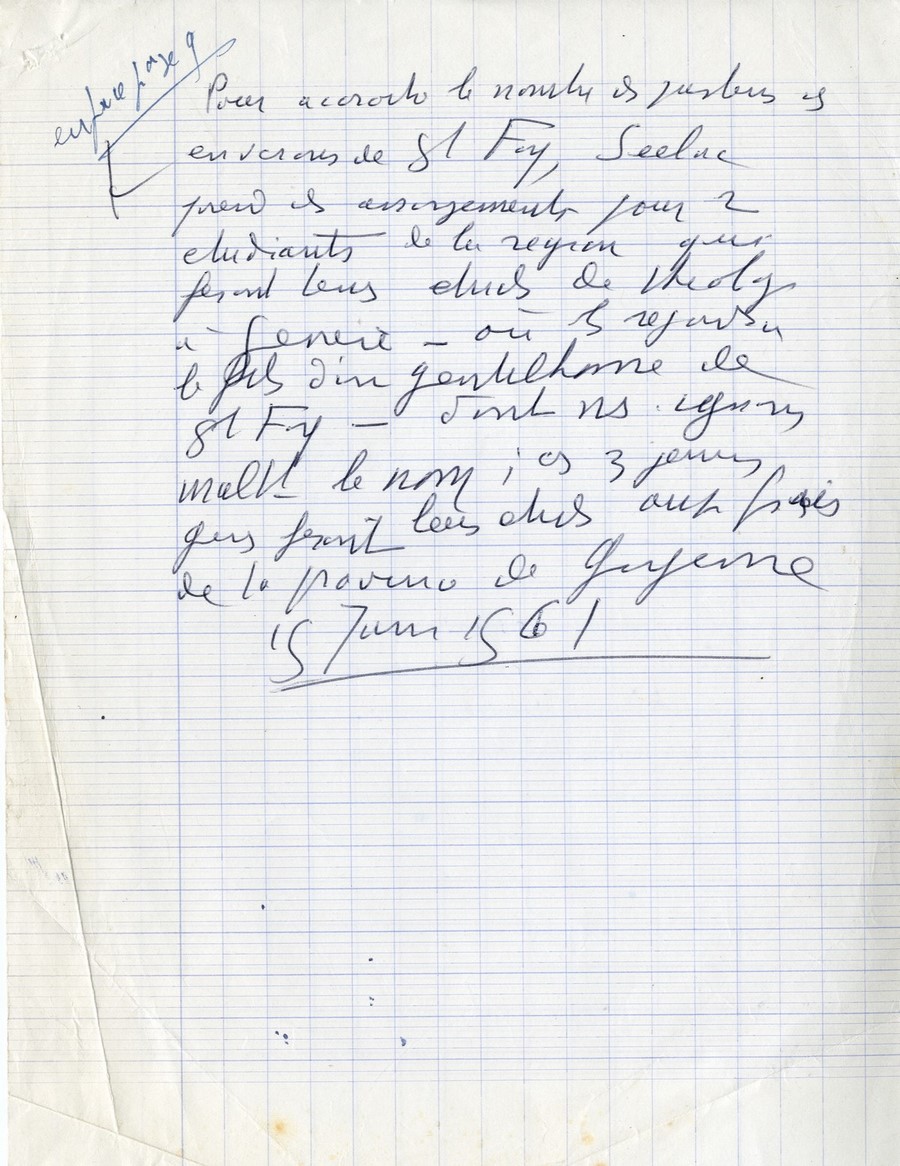 en face page 9
Pour accroitre le nombre des pasteurs des
environs de St Foy, Seelac
prend des arrangements pour 2
etudiants de la region qui
feront leurs etudes de theolog
à Geneve - où ils
le fils d'un gentilhomme de
St Foy - dont ns ignorons
malh le nom ; ces 3 jeunes
gens feront leurs etudes aux frais
de la province de Guyenne
15 Juin 1561